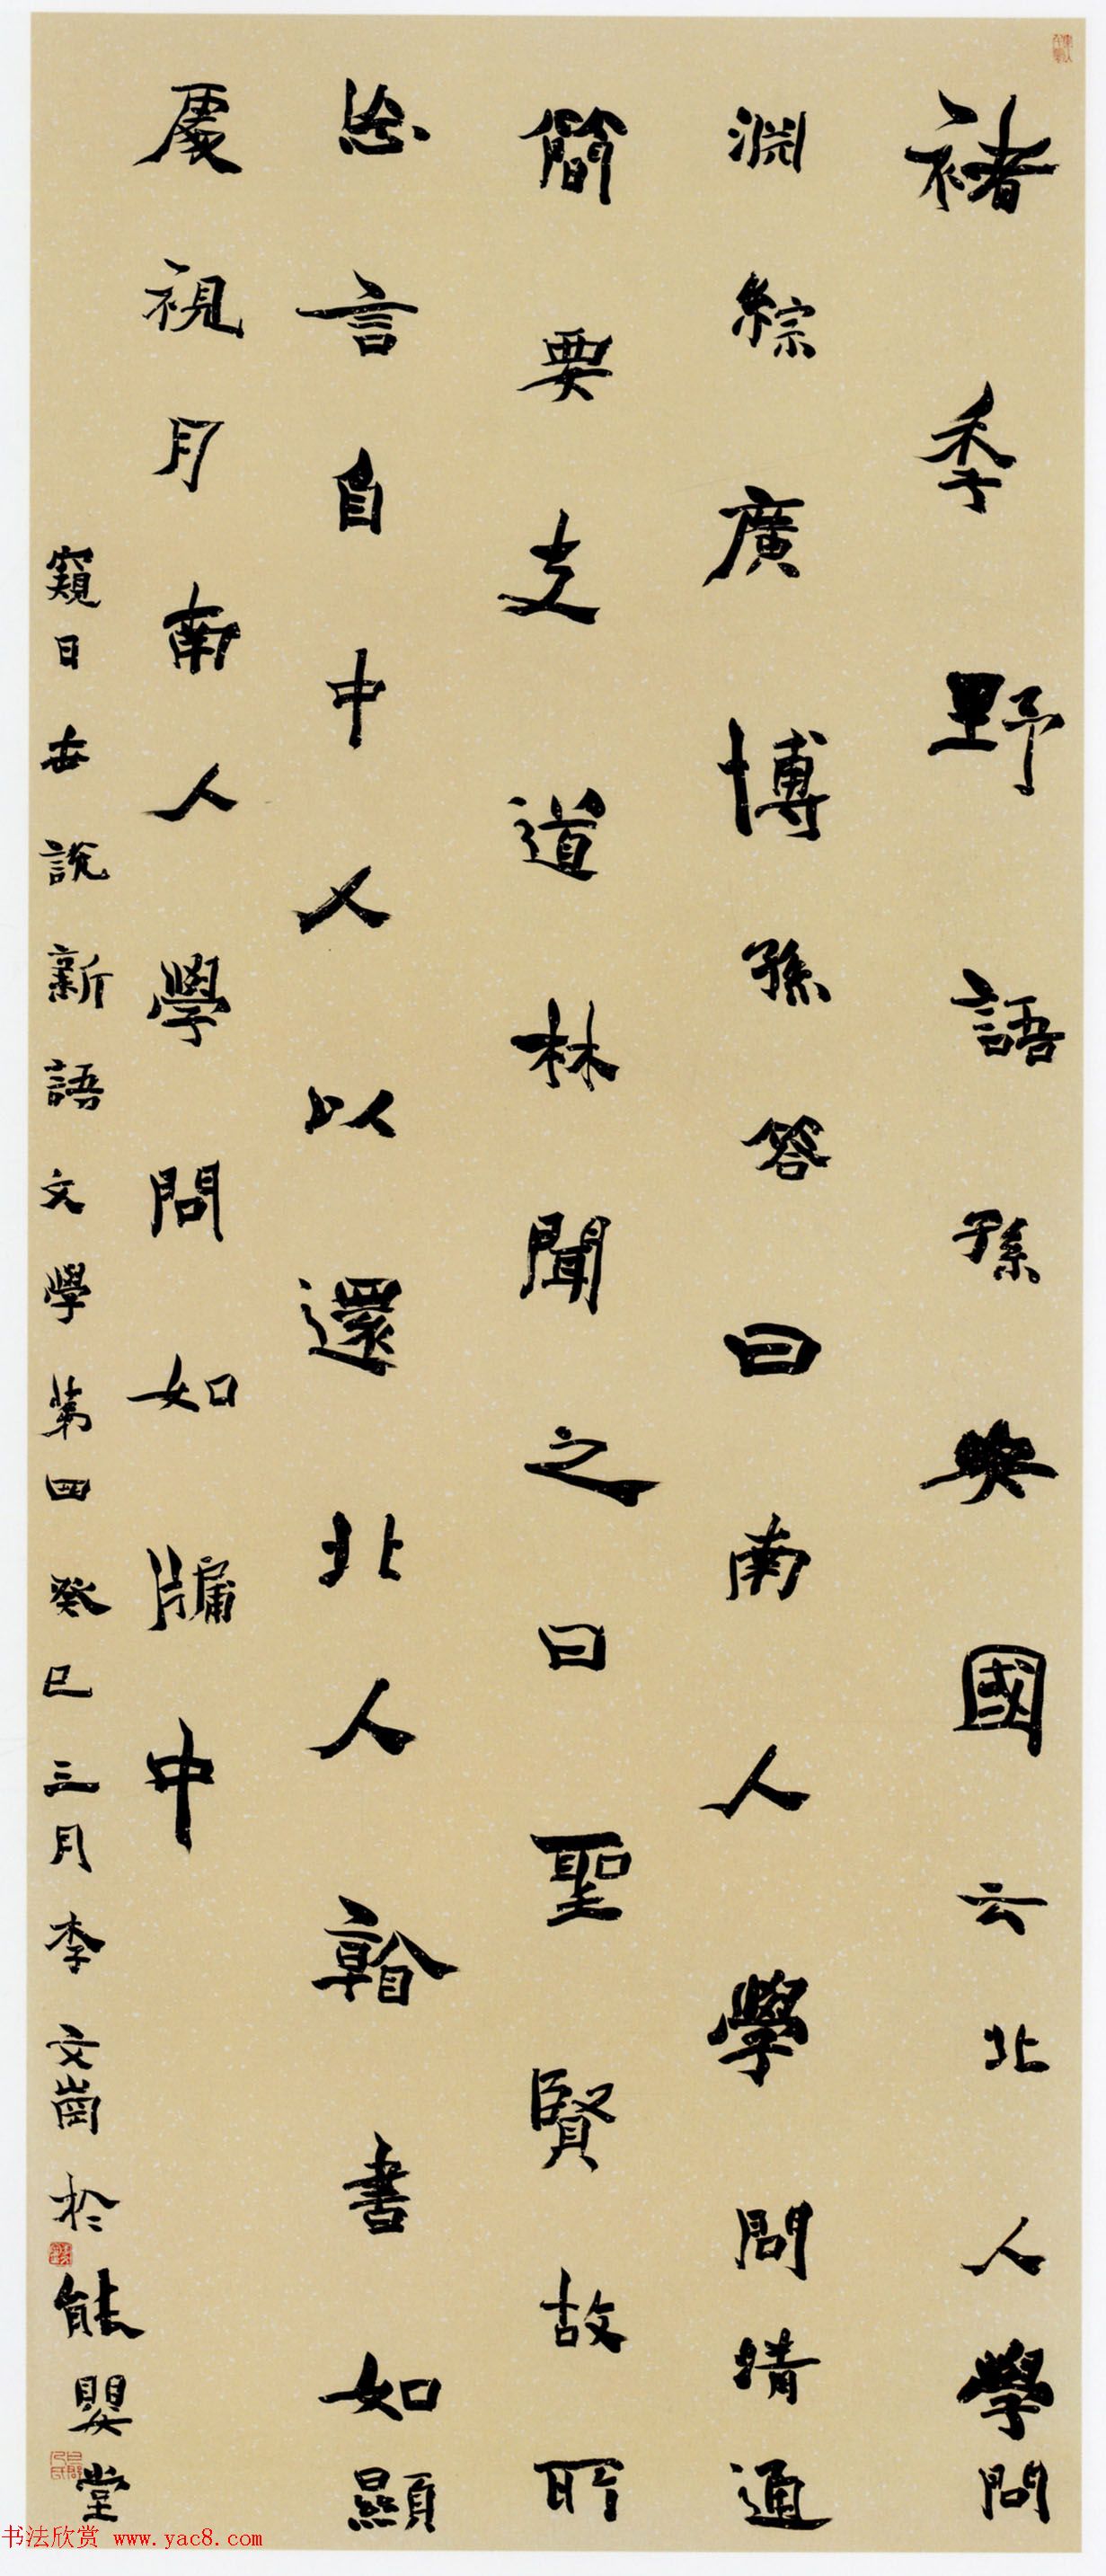 褚季野語孫央國云北人學問
淵綜廣博孫答曰南人學問清通
簡要支道林聞之曰聖賢故所
忘言自中人以還北人看書如顯
處視月南人學問如牖中
窺日世說新語文學第四癸巳三月李文崗於能嬰堂
书法欣赏 www.yac8.com